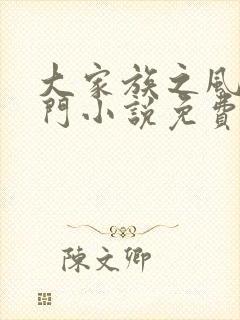 大家族之風
門小說免費
陳文卿